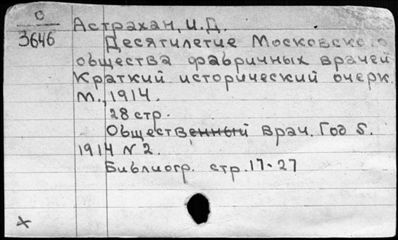 О
3646
Астрахан, И.Д.
Десятилетие Московского
общества фабричных врачей
Краткий исторический очерк.
М., 1914.
28 стр.
Общественный врач. Год 5.
1914 N 2.
Библиогр. стр. 17-27